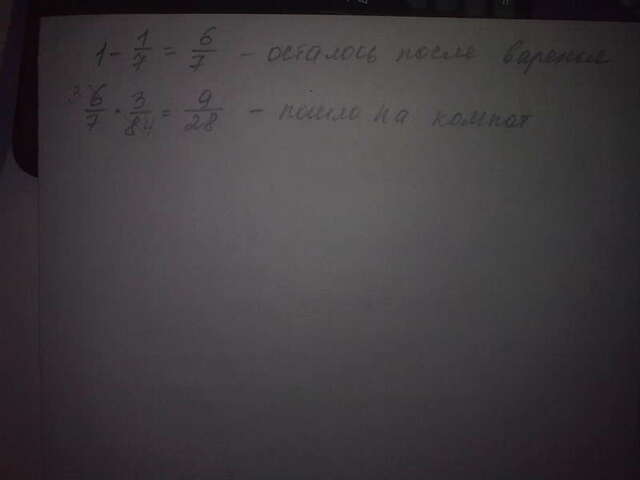 1 - 1/7 = 6/7 - осталось после варенье
3 6/7 · 3/8 4 = 9/28 - пошло на компот